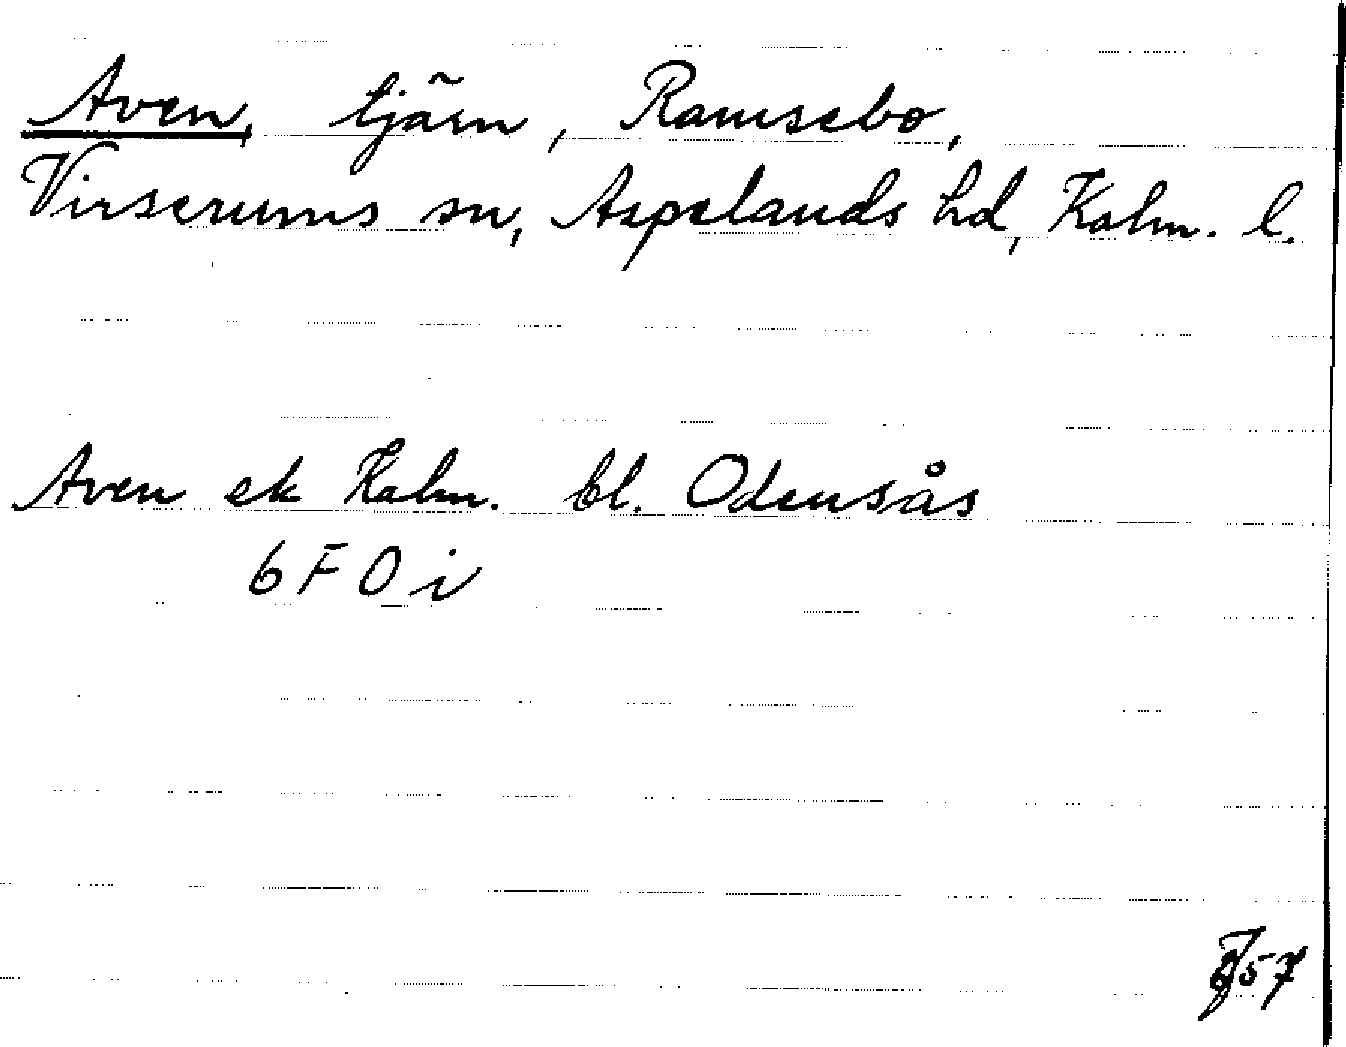 Aven, tjärn, Ramsebo,
Virserums sn, Aspelands hd, Kalm. l.
Aven ek Kalm. bl. Odensås
6 F 0 i
57